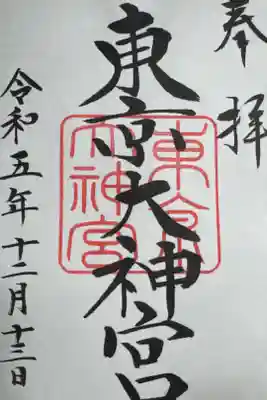 奉拝
東京大神宮
東京大神宮
令和五年十二月十三日